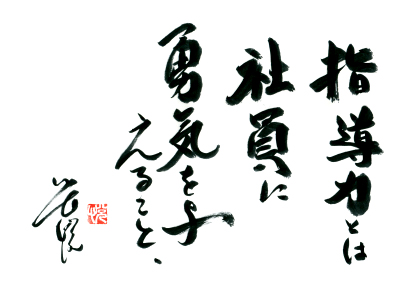 指導力とは
社員に
勇気を与
えること、